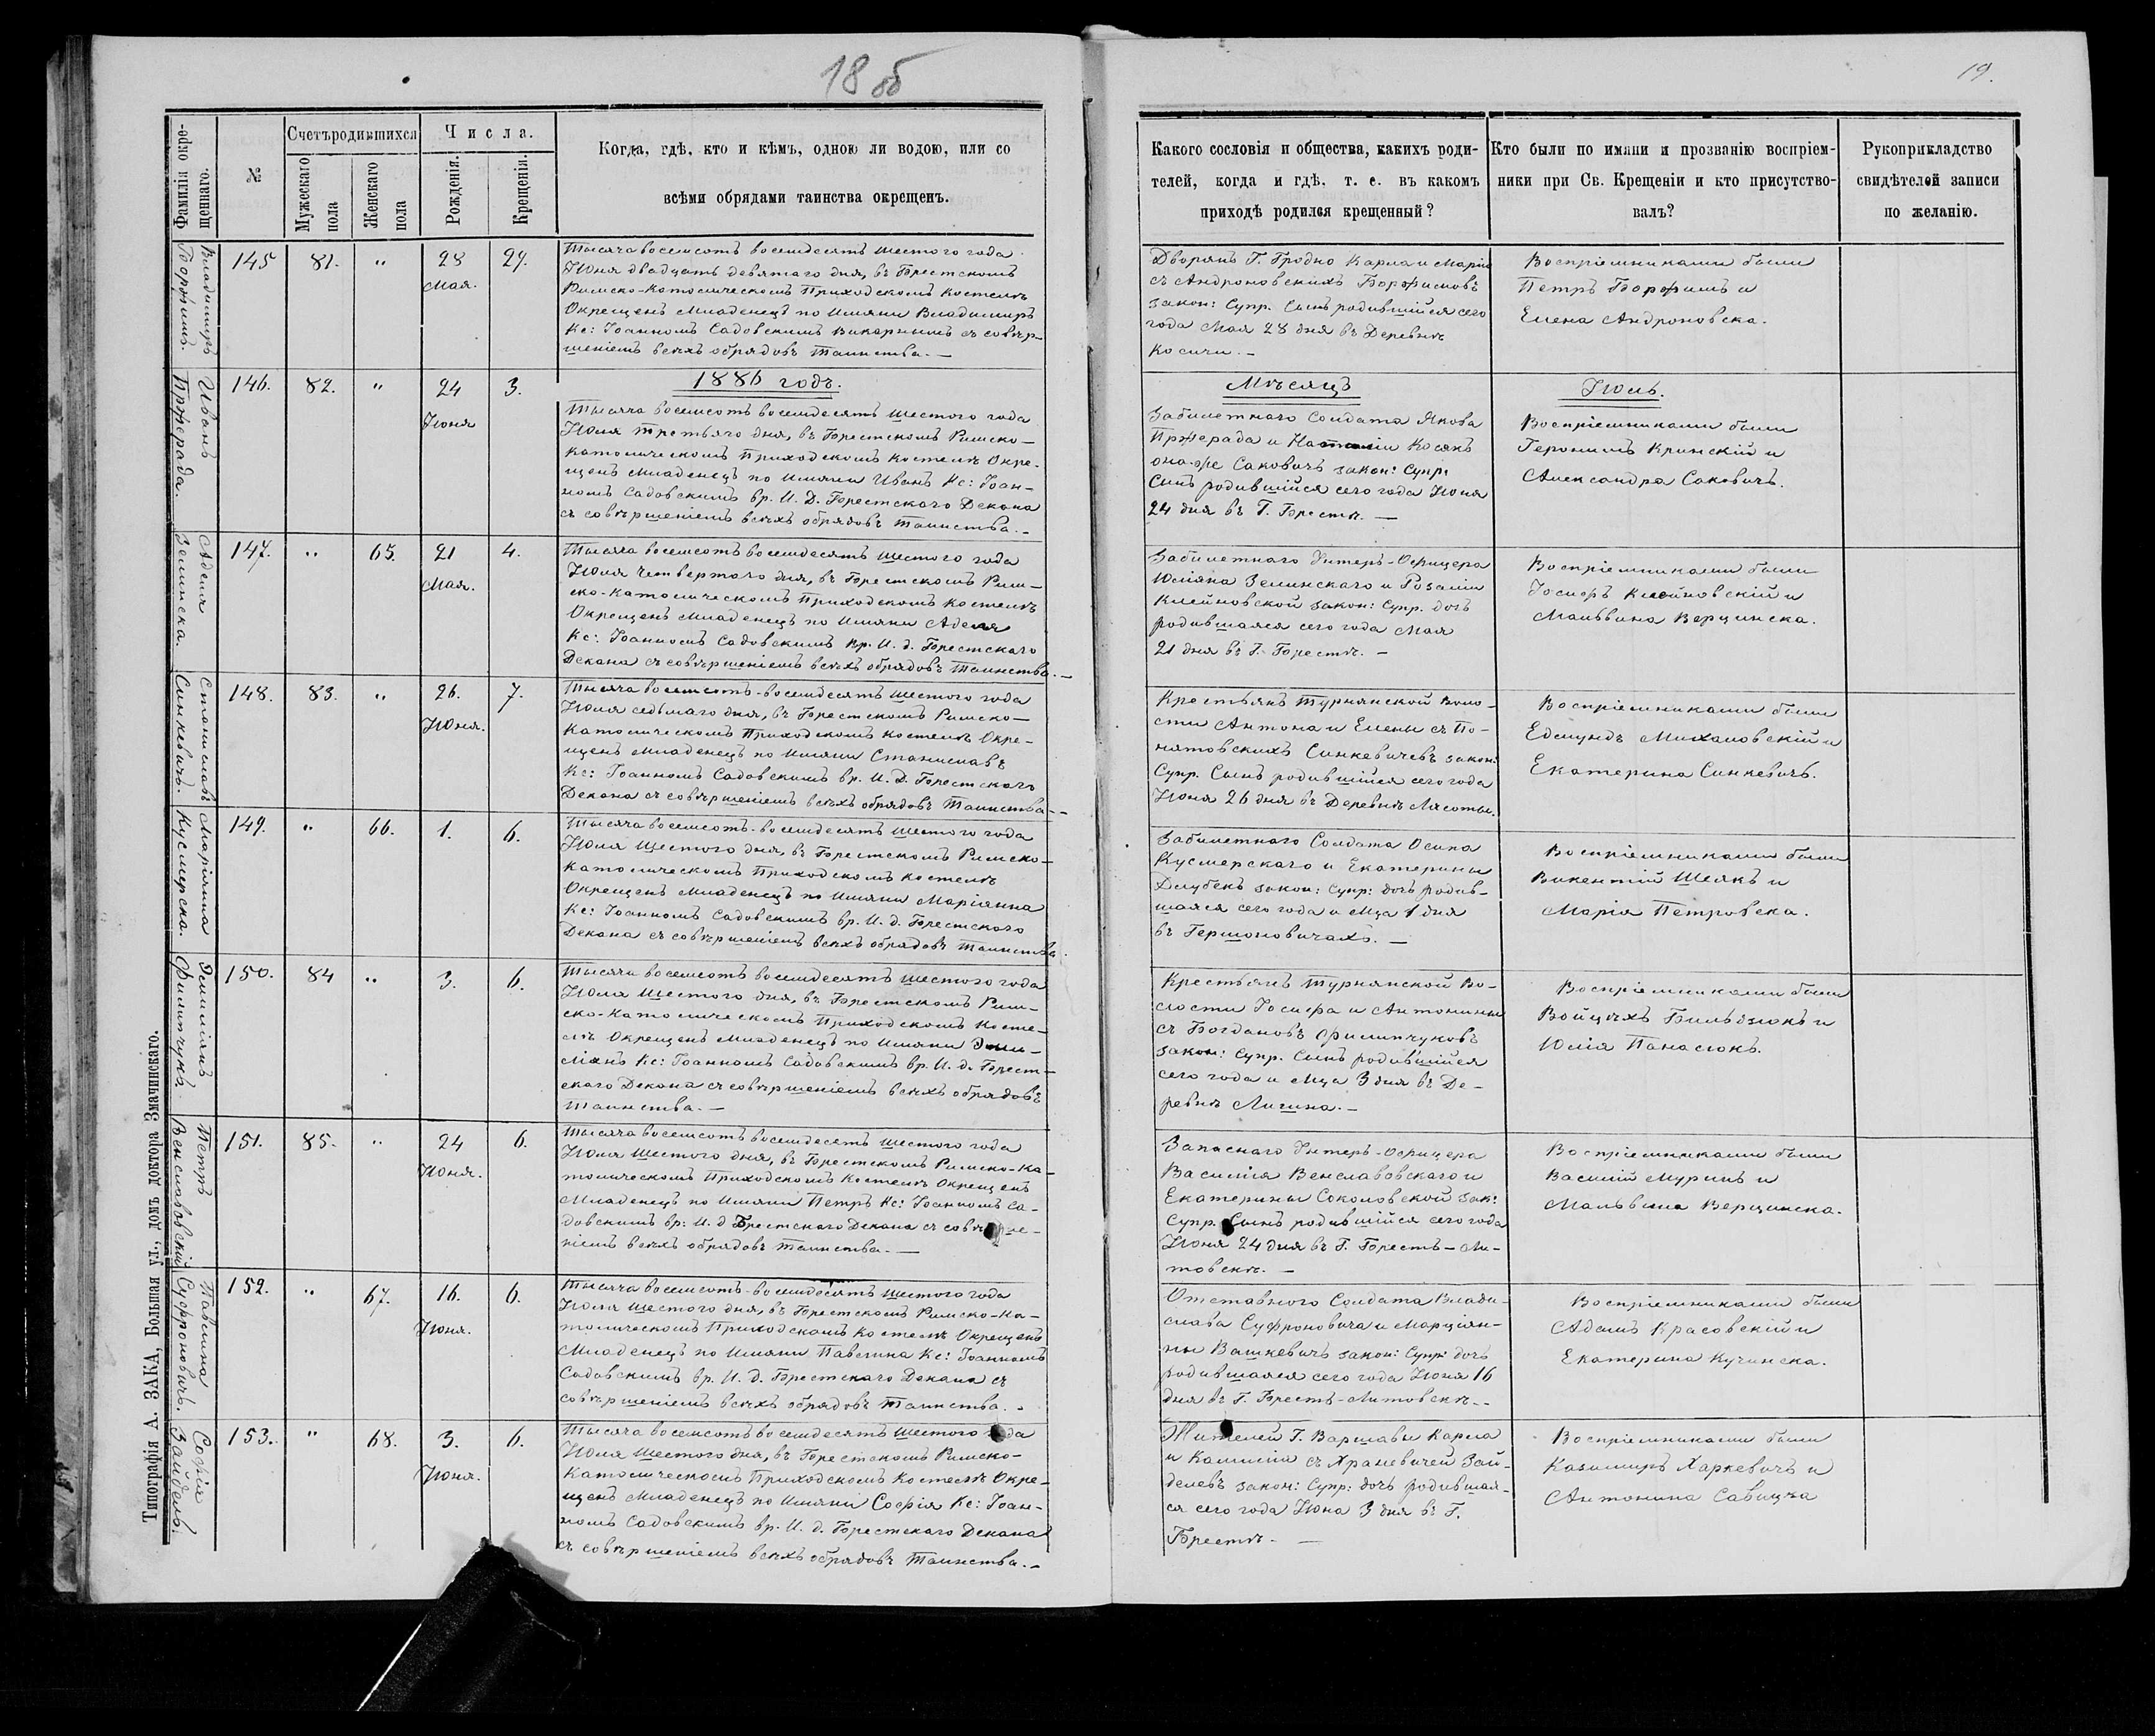 18 об
19.
Фамилія окре-
щеннаго.
№
Счетъ родившихся
Мужескаго
пола
Женскаго
пола
Числа.
Рожденія.
Крещенія.
Когда, гдѣ, кто и кѣмъ, одною ли водою, или со
всѣми обрядами таинства окрещенъ.
Какого сословія и общества, какихъ роди-
телей, когда и гдѣ, т. е. въ какомъ
приходѣ родился крещенный?
Кто были по имяни и прозванію воспріем-
ники при Св. Крещеніи и кто присутство-
валъ?
Рукоприкладство
свидѣтелей записи
по желанію.
Владимиръ
145
81.
"
28
Мая.
29.
Тысяча восемсотъ восемдесятъ шестого года
Июня двадцать девятаго дня, въ Брестскомъ
Римско-Католическомъ Приходскомъ Костелѣ
Окрещенъ Младенецъ по Имяни Владимиръ
Кс: Іоанномъ Садовскимъ Викарнымъ съ совѣр-
шеніемъ всѣхъ обрядовъ Таинства. —
Дворянъ Г. Гродно Карла и Маріи
съ Андроновскихъ
закон: Супр. Сынъ родившійся сего
года Мая 28 дня въ Деревнѣ
Косичи. —
Воспріемниками были
Петръ и
Елена Андроновска.
Иванъ
Пржерада.
146.
82.
"
24
Июня
3.
1886 годъ.
Мѣсяцъ
Июль.
Тысяча восемсотъ восемдесятъ шестого года
Июля третьяго дня, въ Брестскомъ Римско-
Католическомъ Приходскомъ Костелѣ Окре-
щенъ Младенецъ по Имяни Иванъ Кс: Іоан-
номъ Садовскимъ вр. И. Д. Брестского Декана
съ совѣршеніемъ всѣхъ обрядовъ Таинства. —
Забилетнаго Солдата Якова
Пржерада и Наталіи Косякъ
она-же Саковичъ закон: Супр:
Сынъ родившійся сего года Июня
24 дня въ Г. Брестѣ. —
Воспріемниками были
Геронимъ Кринскій и
Александра Саковичъ.
Аделя
Зелинска.
147.
"
65.
21
Мая.
4.
Тысяча восемсотъ восемдесятъ шестого года
Июля четвертого дня, въ Брестскомъ Рим-
ско-Католическомъ Приходскомъ Костелѣ
Окрещенъ Младенецъ по Имяни Аделя
Кс: Іоанномъ Садовскимъ вр. И. д. Брестскаго
Декана съ совѣршеніемъ всѣхъ обрядовъ Таинства. —
Забилетнаго Унтеръ-Офицера
Юліяна Зелинскаго и Розаліи
Клейновской закон: Супр. дочь
родившаяся сего года Мая
21 дня въ Г. Брестѣ. —
Воспріемниками были
Іосифъ Клейновскій и
Мальвина Верцинска.
Станиславъ
Синкевичъ.
148.
83.
"
26.
Июня.
7.
Тысяча восемсотъ-восемдесятъ шестого года
Июля седьмаго дня, въ Брестскомъ Римско-
Католическомъ Приходскомъ Костелѣ Окре-
щенъ Младенецъ по Имяни Станиславъ
Кс: Іоанномъ Садовскимъ вр. И. Д. Брестскаго
Декана съ совѣршеніемъ всѣхъ обрядовъ Таинства. —
Крестьянъ Турнянской Воло-
сти Антона и Елены съ По-
нятовскихъ Синкевичевъ закон:
Супр. Сынъ родившійся сего года
Июня 26 дня въ Деревнѣ Лясоты.
Воспріемниками были
Едмундъ Михаловскій и
Екатерина Синкевичъ.
Маріянна
Кусмерска.
149.
"
66.
1.
6.
Тысяча восемсотъ-восемдесятъ шестого года
Июля Шестого дня, въ Брестскомъ Римско-
Католическомъ Приходскомъ Костелѣ
Окрещенъ Младенецъ по Имяни Маріянна
Кс: Іоанномъ Садовскимъ вр. И. д. Брестского
Декана съ совѣршеніемъ всѣхъ обрядовъ Таинства.
Забилетнаго Солдата Осипа
Кусмерскаго и Екатерины
Длубекъ закон: Супр: дочь родив-
шаяся сего года и М-ца 1 дня
въ Гершоновичахъ. —
Воспріемниками были
Викентій Шелкъ и
Марія Петровска.
Эмиліянъ
Филипчукъ.
150.
84
"
3.
6.
Тысяча восемсотъ восемдесятъ шестого года
Июля Шестого дня, въ Брестскомъ Рим-
ско-Католическомъ Приходскомъ Косте-
лѣ Окрещенъ Младенецъ по Имяни Эми-
ліянъ Кс: Іоанномъ Садовскимъ вр. И. д. Брест-
скаго Декана съ совѣршеніемъ всѣхъ обрядовъ
Таинства. —
Крестьянъ Турнянской Во-
лости Іосифа и Антонины
съ Богдановъ Филипчуковъ
закон: Супр. Сынъ родившійся
сего года и М-ца 3 дня въ Де-
ревнѣ Личина. —
Воспріемниками были
Войцѣхъ Бильдзюкъ и
Юлія Панасюкъ.
Петръ
Венславовскій
151.
85.
"
24
Июня.
6.
Тысяча восемсотъ восемдесятъ шестого года
Июля Шестого дня, въ Брестскомъ Римско-Ка-
толическомъ Приходскомъ Костелѣ Окрещенъ
Младенецъ по Имяни Петръ Кс: Іоанномъ Са-
довскимъ вр: И. д Брестскаго Декана съ совѣрше-
ніемъ всѣхъ обрядовъ таинства. —
Запаснаго Унтеръ-Офицера
Василія Венславовскаго и
Екатерины Соколовской зак:
Супр. Сынъ родившійся сего года
Июня 24 дня въ Г. Брестъ-Ли-
товскѣ. —
Воспріемниками были
Василій Муринъ и
Мальвина Верцинска.
Павлина
Суфроновичъ.
152.
"
67.
16.
Июня.
6.
Тысяча восемсотъ-восемдесятъ шестого года
Июля Шестого дня, въ Брестскомъ Римско-Ка-
толическомъ Приходскомъ Костелѣ Окрещенъ
Младенецъ по Имяни Павлина Кс: Іоанномъ
Садовскимъ вр. И. д. Брестскаго Декана съ
совѣршеніемъ всѣхъ обрядовъ Таинства. -
Отставного Солдата Влади-
слава Суфроновича и Марціян-
ны Вашкевичъ закон: Супр: дочь
родившаяся сего года Июня 16
дня въ Г. Брестъ-Литовскѣ. -
Воспріемниками были
Адамъ Красовскій и
Екатерина Кучинска.
Софія
Зайдель.
153.
"
68.
3.
Июня.
6.
Тысяча восемсотъ восемдесятъ шестого года
Июля Шестого дня, въ Брестскомъ Римско-
Католическомъ Приходскомъ Костелѣ Окре-
щенъ Младенецъ по Имяни Софія Кс: Іоан-
номъ Садовскимъ вр. И. д. Брестскаго Декана
съ совѣршеніемъ всѣхъ обрядовъ Таинства. —
Жителей Г. Варшавы Карла
и Камиліи съ Храневичей Зай-
делевъ закон: Супр: дочь родившая-
ся сего года Июна 3 дня въ Г.
Брестѣ. —
Воспріемниками были
Казимиръ Харкевичъ и
Антонина Савицка
Типографія А. ЗАКА, Большая ул., домъ доктора Змачинскаго.